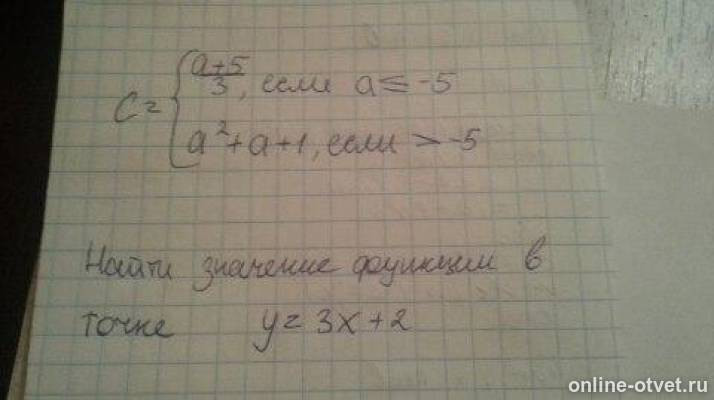 C = { a+5/3, если a ≤ -5
a²+a+1, если > -5
Найти значение функции в
точке y = 3x+2
online-otvet.ru